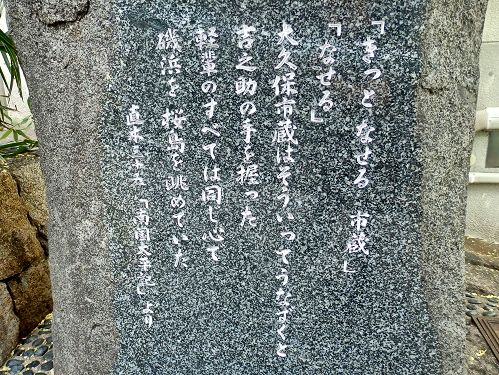 「きっと なせる 市蔵」
「なせる」
大久保市蔵はそういってうなずくと
吉之助の手を握った
軽輩のすべては同じ心で
磯浜を 桜島を眺めていた
直木三十五 「南国太平記」より